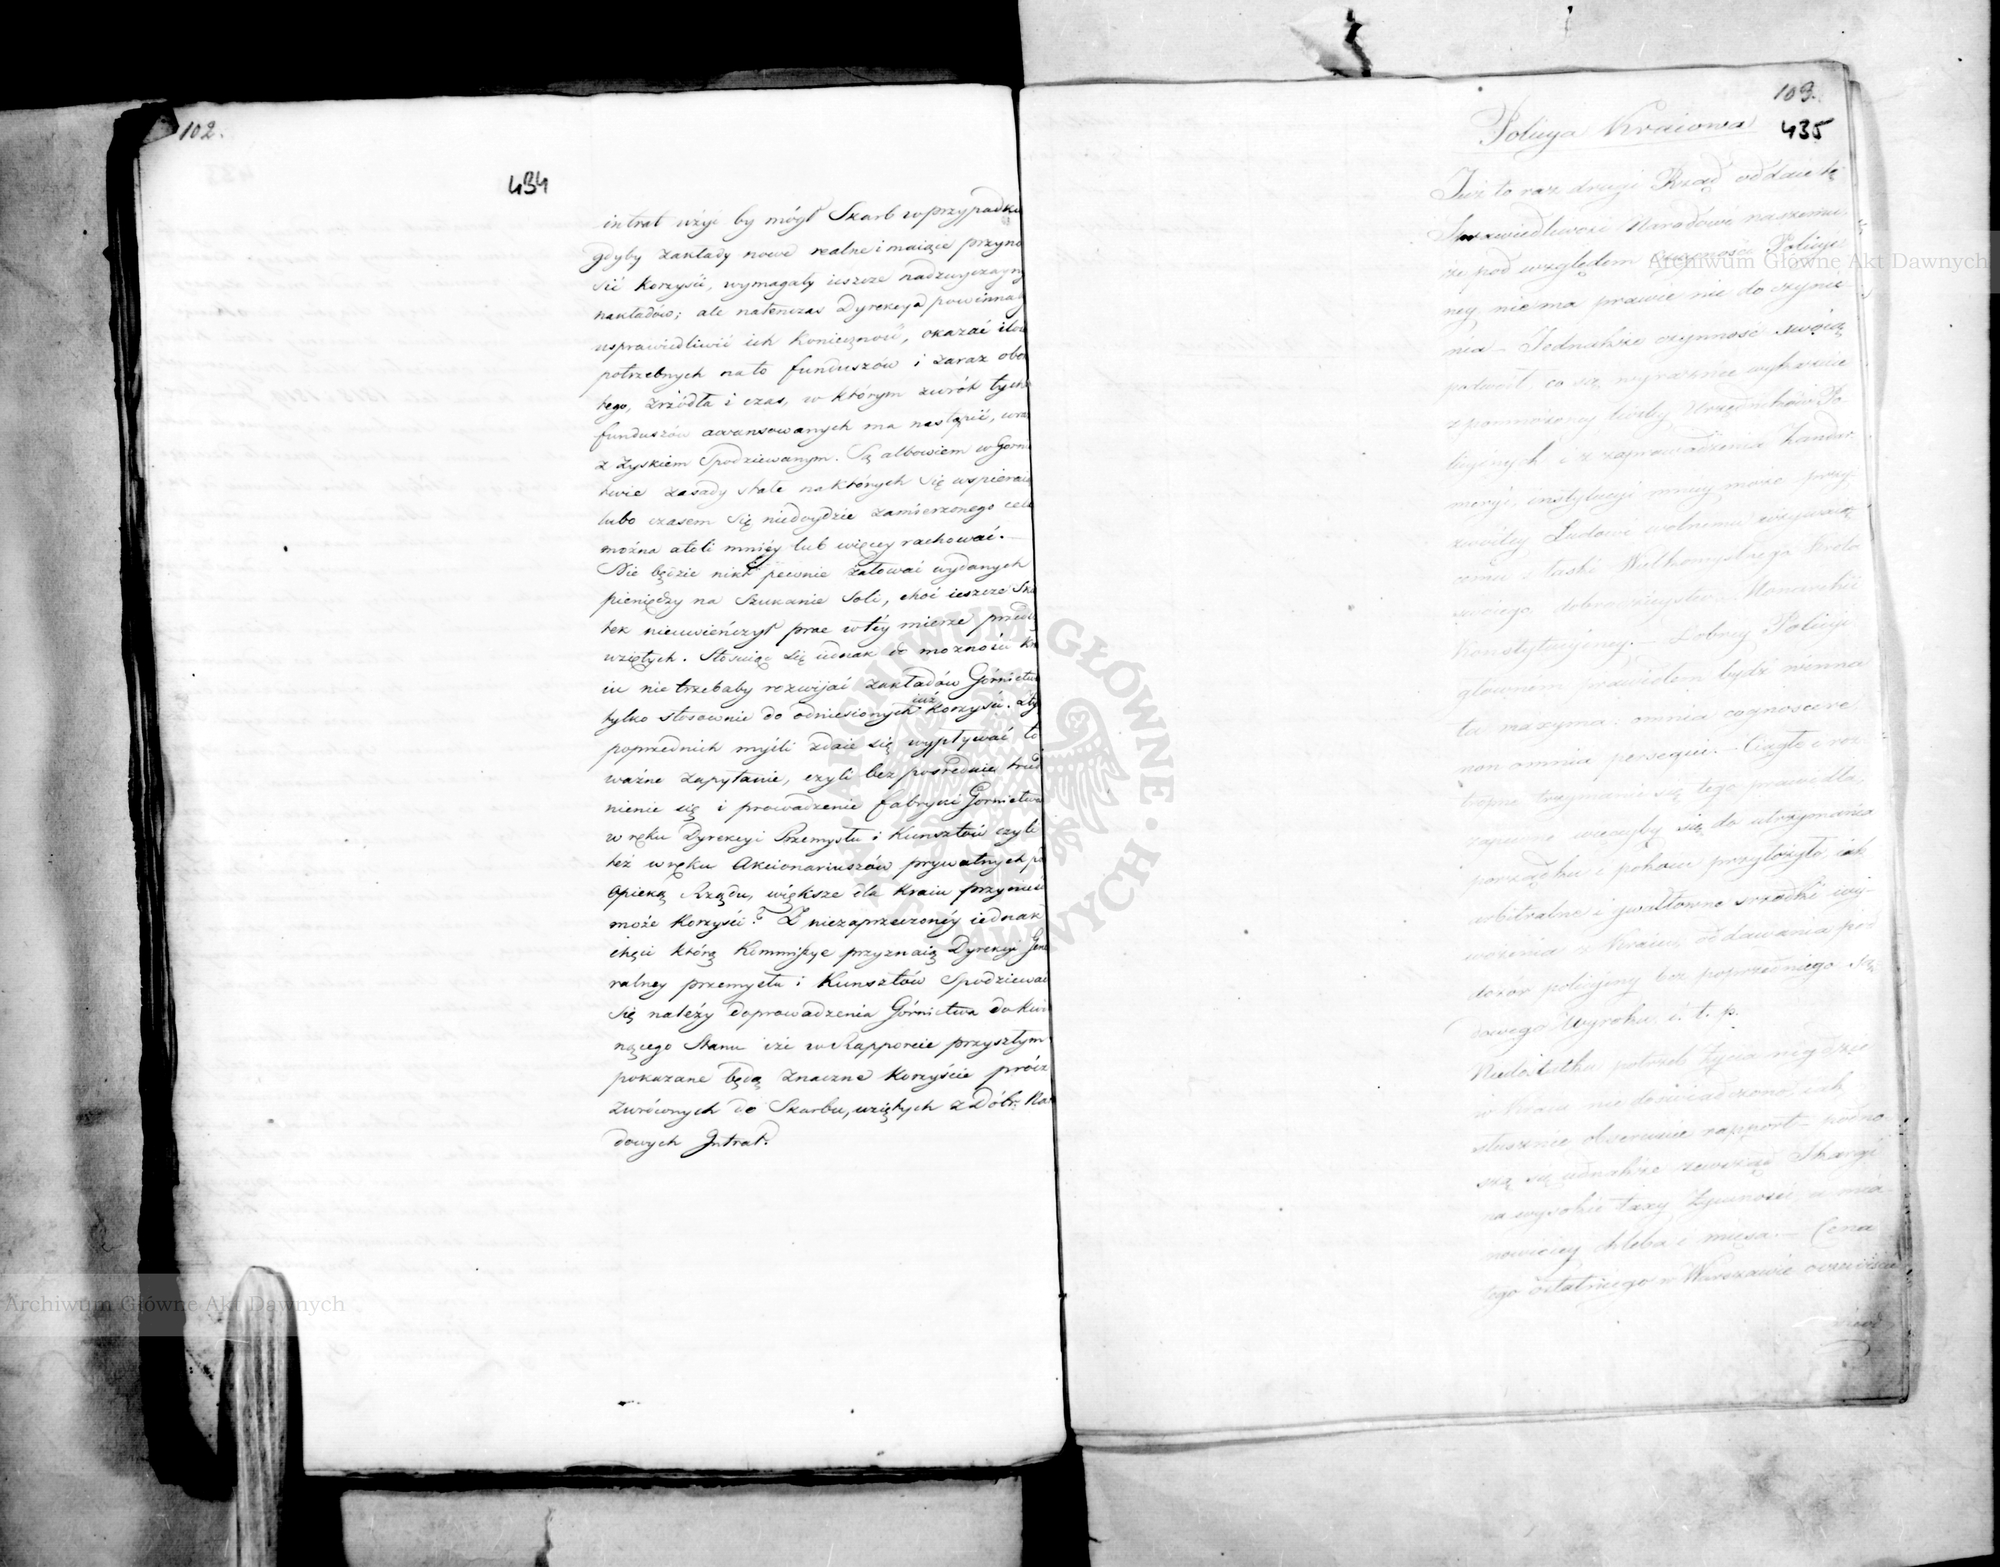 102.
434
intrat użyć by mógł Skarb w przypadku
gdyby zakłady nowe realne i maiące przyno
sić korzyść, wymagały ieszcze nadzwyczayny
nakładów; ale natenczas Dyrekcya powinna
usprawiedliwić ich konieczność, okazać ilo
potrzebnych na to funduszów i zaraz obo
tego, źrzódła i czas, w którym zwrót tych
funduszów awansowanych ma nastąpić, wra
z zyskiem spodziewanym. Są albowiem w Gorni
twie zasady stałe na których się wspieraią
lubo czasem się niedoydzie zamierzonego celu
można atoli mniéy lub więcey rachować.
Nie będzie nikt pewnie żałować wydanych
pieniędzy na szukanie soli, choć ieszcze sku
tek nieuwieńczył prac w téy mierze przed
wziętych. Stosuiąc się iednak do możności kra
iu nie trzebaby rozwijać zakładów Górnictwa
tylko stosownie do odniesionych już korzyści. Z ty
poprzednich myśli zdaie się wypływać to
ważne zapytanie, czyli bezpośrednie trud
nienie się i prowadzenie fabryki Gornictwa
w ręku Dyrekcyi Przemysłu i Kunsztów czyli
też w ręku Akcionariuszów prywatnych po
opieką Rządu, większe dla Kraiu przynieś
może korzyści? Z niezaprzeczonéy iednak
chęci którą Kommissye przyznaią Dyrekcyi Gene
ralney przemysłu i Kunsztów spodziewać
się należy doprowadzenia Górnictwa do kwi
nącego Stanu iże w Rapporcie przyszłym
pokazane będą znaczne korzyście prócz
zwróconych do Skarbu, wziętych z Dóbr Na
dowych Intrat.
109.
435
Policya Kraiowa
Już to raz drugi Rząd oddaie tę
Sprawiedliwość Narodowi naszemu,
że pod względem czynności Policyi
ney, niema prawie nic do czynie
nia — Jednakże czynność swoią
podwoił, co się wyraźnie wykazuie
z pomnożoney liczby Urzędników Po
licyinych i z zaprowadzenia Żandar
meryi, instytucyi mniey może przy
zwoitey Ludowi wolnemu używaią
cemu z łaski Wielkomyślnego Króla
swoiego dobrodzieystw Monarchii
Konstytucyiney. — Dobrey Policyi
głównem prawidłem bydź winna
ta maxyma: omnia cognoscere,
non omnia persequi. — Ciągłe i roz
tropne trzymanie się tego prawidła,
zapewne więcéyby się do utrzymania
porządku i pokoiu przyłożyło, iak
arbitralne i gwałtowne srzodki wy
wożenia z Kraiu, oddawania pod
dozór policyiny bez poprzedniego Są
dowego Wyroku i. t. p.
Niedostatku potrzeb życia nigdzie
w Kraiu nie doświadczono, iak
słusznie obserwuie rapport — podno
szą się iednakże zewsząd Skargi
na wysokie taxy żywności, a mia
nowiciey chleba i mięsa. — Cena
tego ostatniego w Warszawie oczewiście